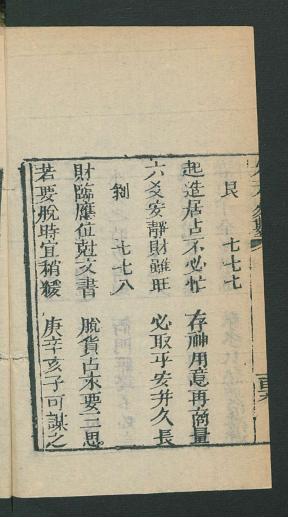 艮　七七七
起造居占不必忙　存神用意再商量
六爻安靜財雖旺　必取平安并久長
剝　七七八
財臨應位剋文書　脫貨占來要三思
若要脫時宜稍緩　庚辛亥子可謀之